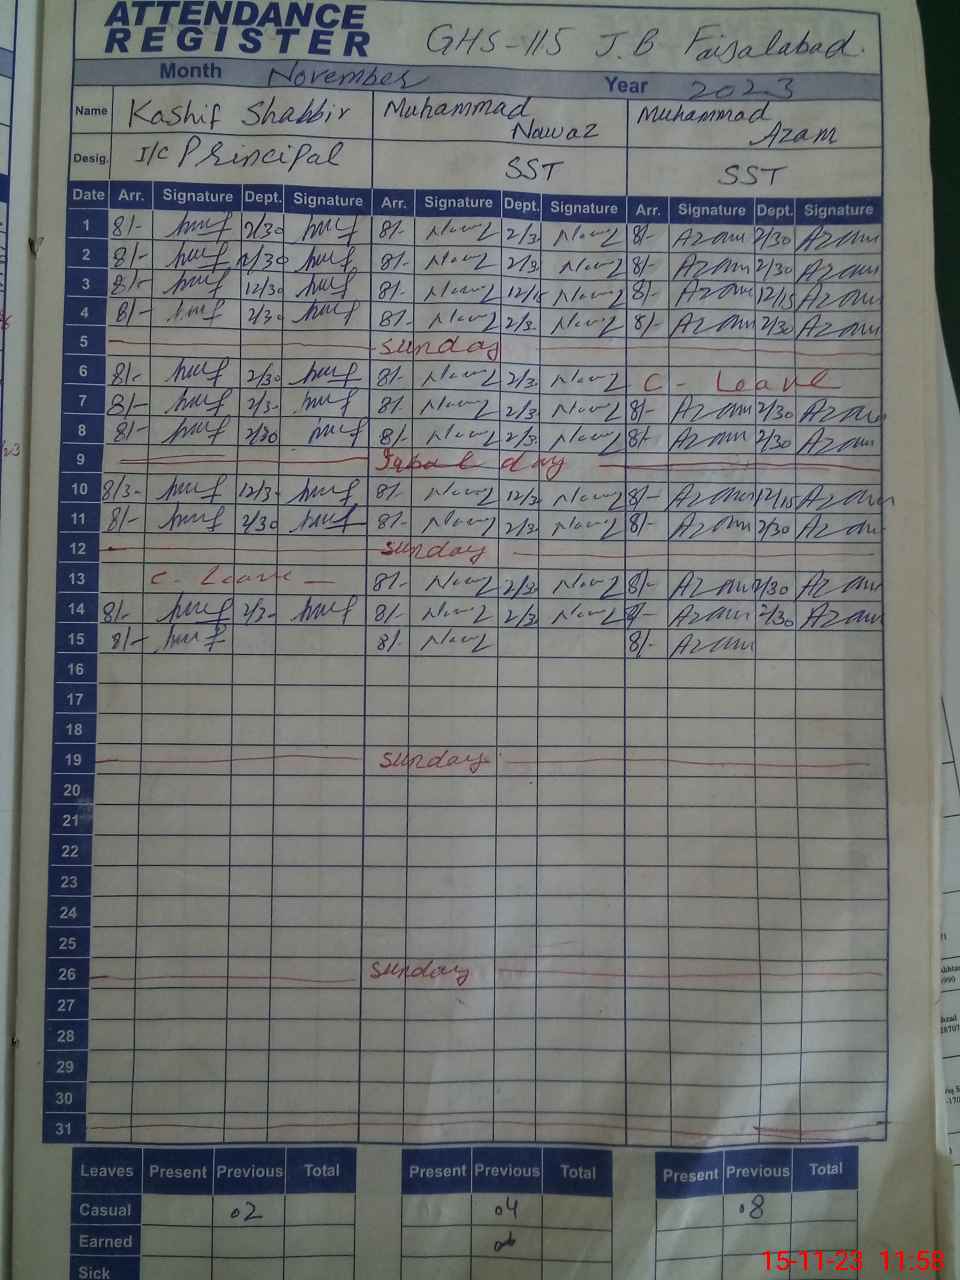 ATTENDANCE
REGISTER GHS-115 J.B Faisalabad.
Month November Year 2023
Name Kashif Shabbir Muhammad Nawaz Muhammad Azam
Desig. I/C Principal SST SST
Date Arr. Signature Dept. Signature Arr. Signature Dept. Signature Arr. Signature Dept. Signature
1 8/- 2/30 8/- Nawaz 2/3 Nawaz 8/- Azam 2/30 Azam
2 8/- 2/30 8/- Nawaz 2/3 Nawaz 8/- Azam 2/30 Azam
3 8/- 12/30 8/- Nawaz 12/15 Nawaz 8/- Azam 12/15 Azam
4 8/- 2/30 8/- Nawaz 2/3 Nawaz 8/- Azam 2/30 Azam
5 Sunday
6 8/- 2/30 8/- Nawaz 2/3 Nawaz C - Leave
7 8/- 2/3- 8/- Nawaz 2/3 Nawaz 8/- Azam 2/30 Azam
8 8/- 2/30 8/- Nawaz 2/3 Nawaz 8/- Azam 2/30 Azam
9 Iqbal day
10 8/3- 12/3- 8/- Nawaz 12/3 Nawaz 8/- Azam 12/15 Azam
11 8/- 2/30 8/- Nawaz 2/3 Nawaz 8/- Azam 2/30 Azam
12 Sunday
13 C - Leave 8/- Nawaz 2/3 Nawaz 8/- Azam 2/30 Azam
14 8/- 2/3- 8/- Nawaz 2/3 Nawaz 8/- Azam 2/30 Azam
15 8/- 8/- Nawaz 8/- Azam
16
17
18
19 Sunday
20
21
22
23
24
25
26 Sunday
27
28
29
30
31
Leaves Present Previous Total Present Previous Total Present Previous Total
Casual .02 .04 .08
Earned
Sick
15-11-23 11:58